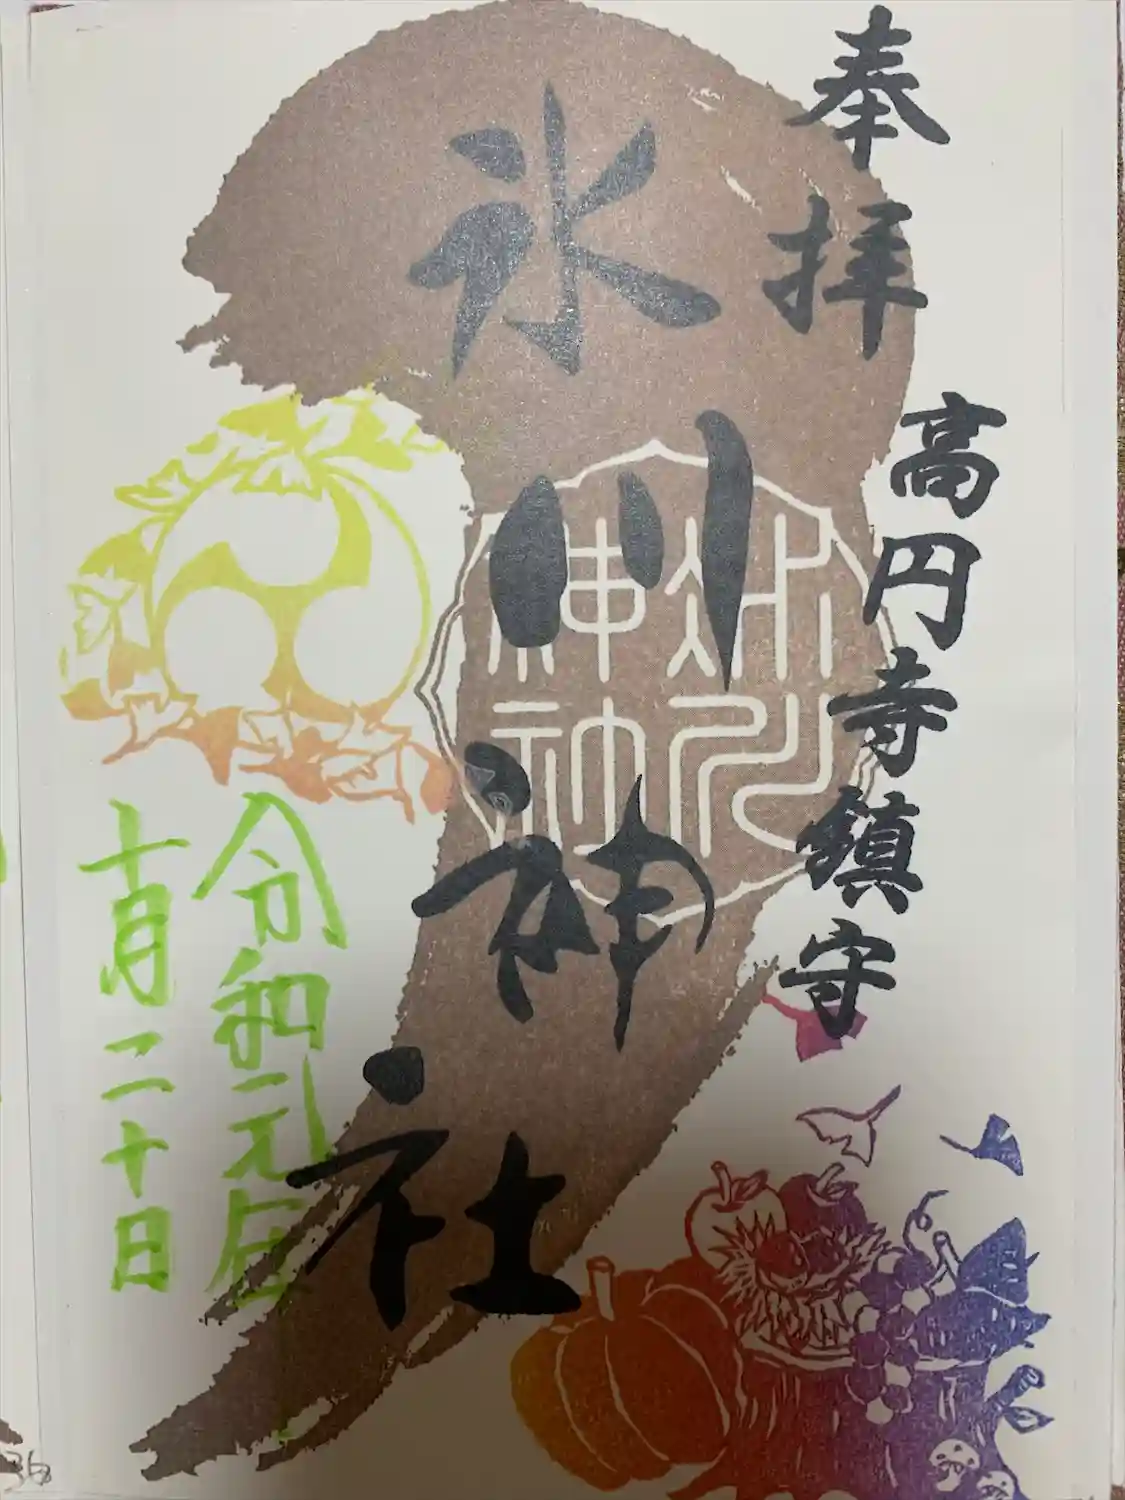 奉拝
高円寺鎮守
氷川神社
氷川
神社
令和元年
十月二十日
36